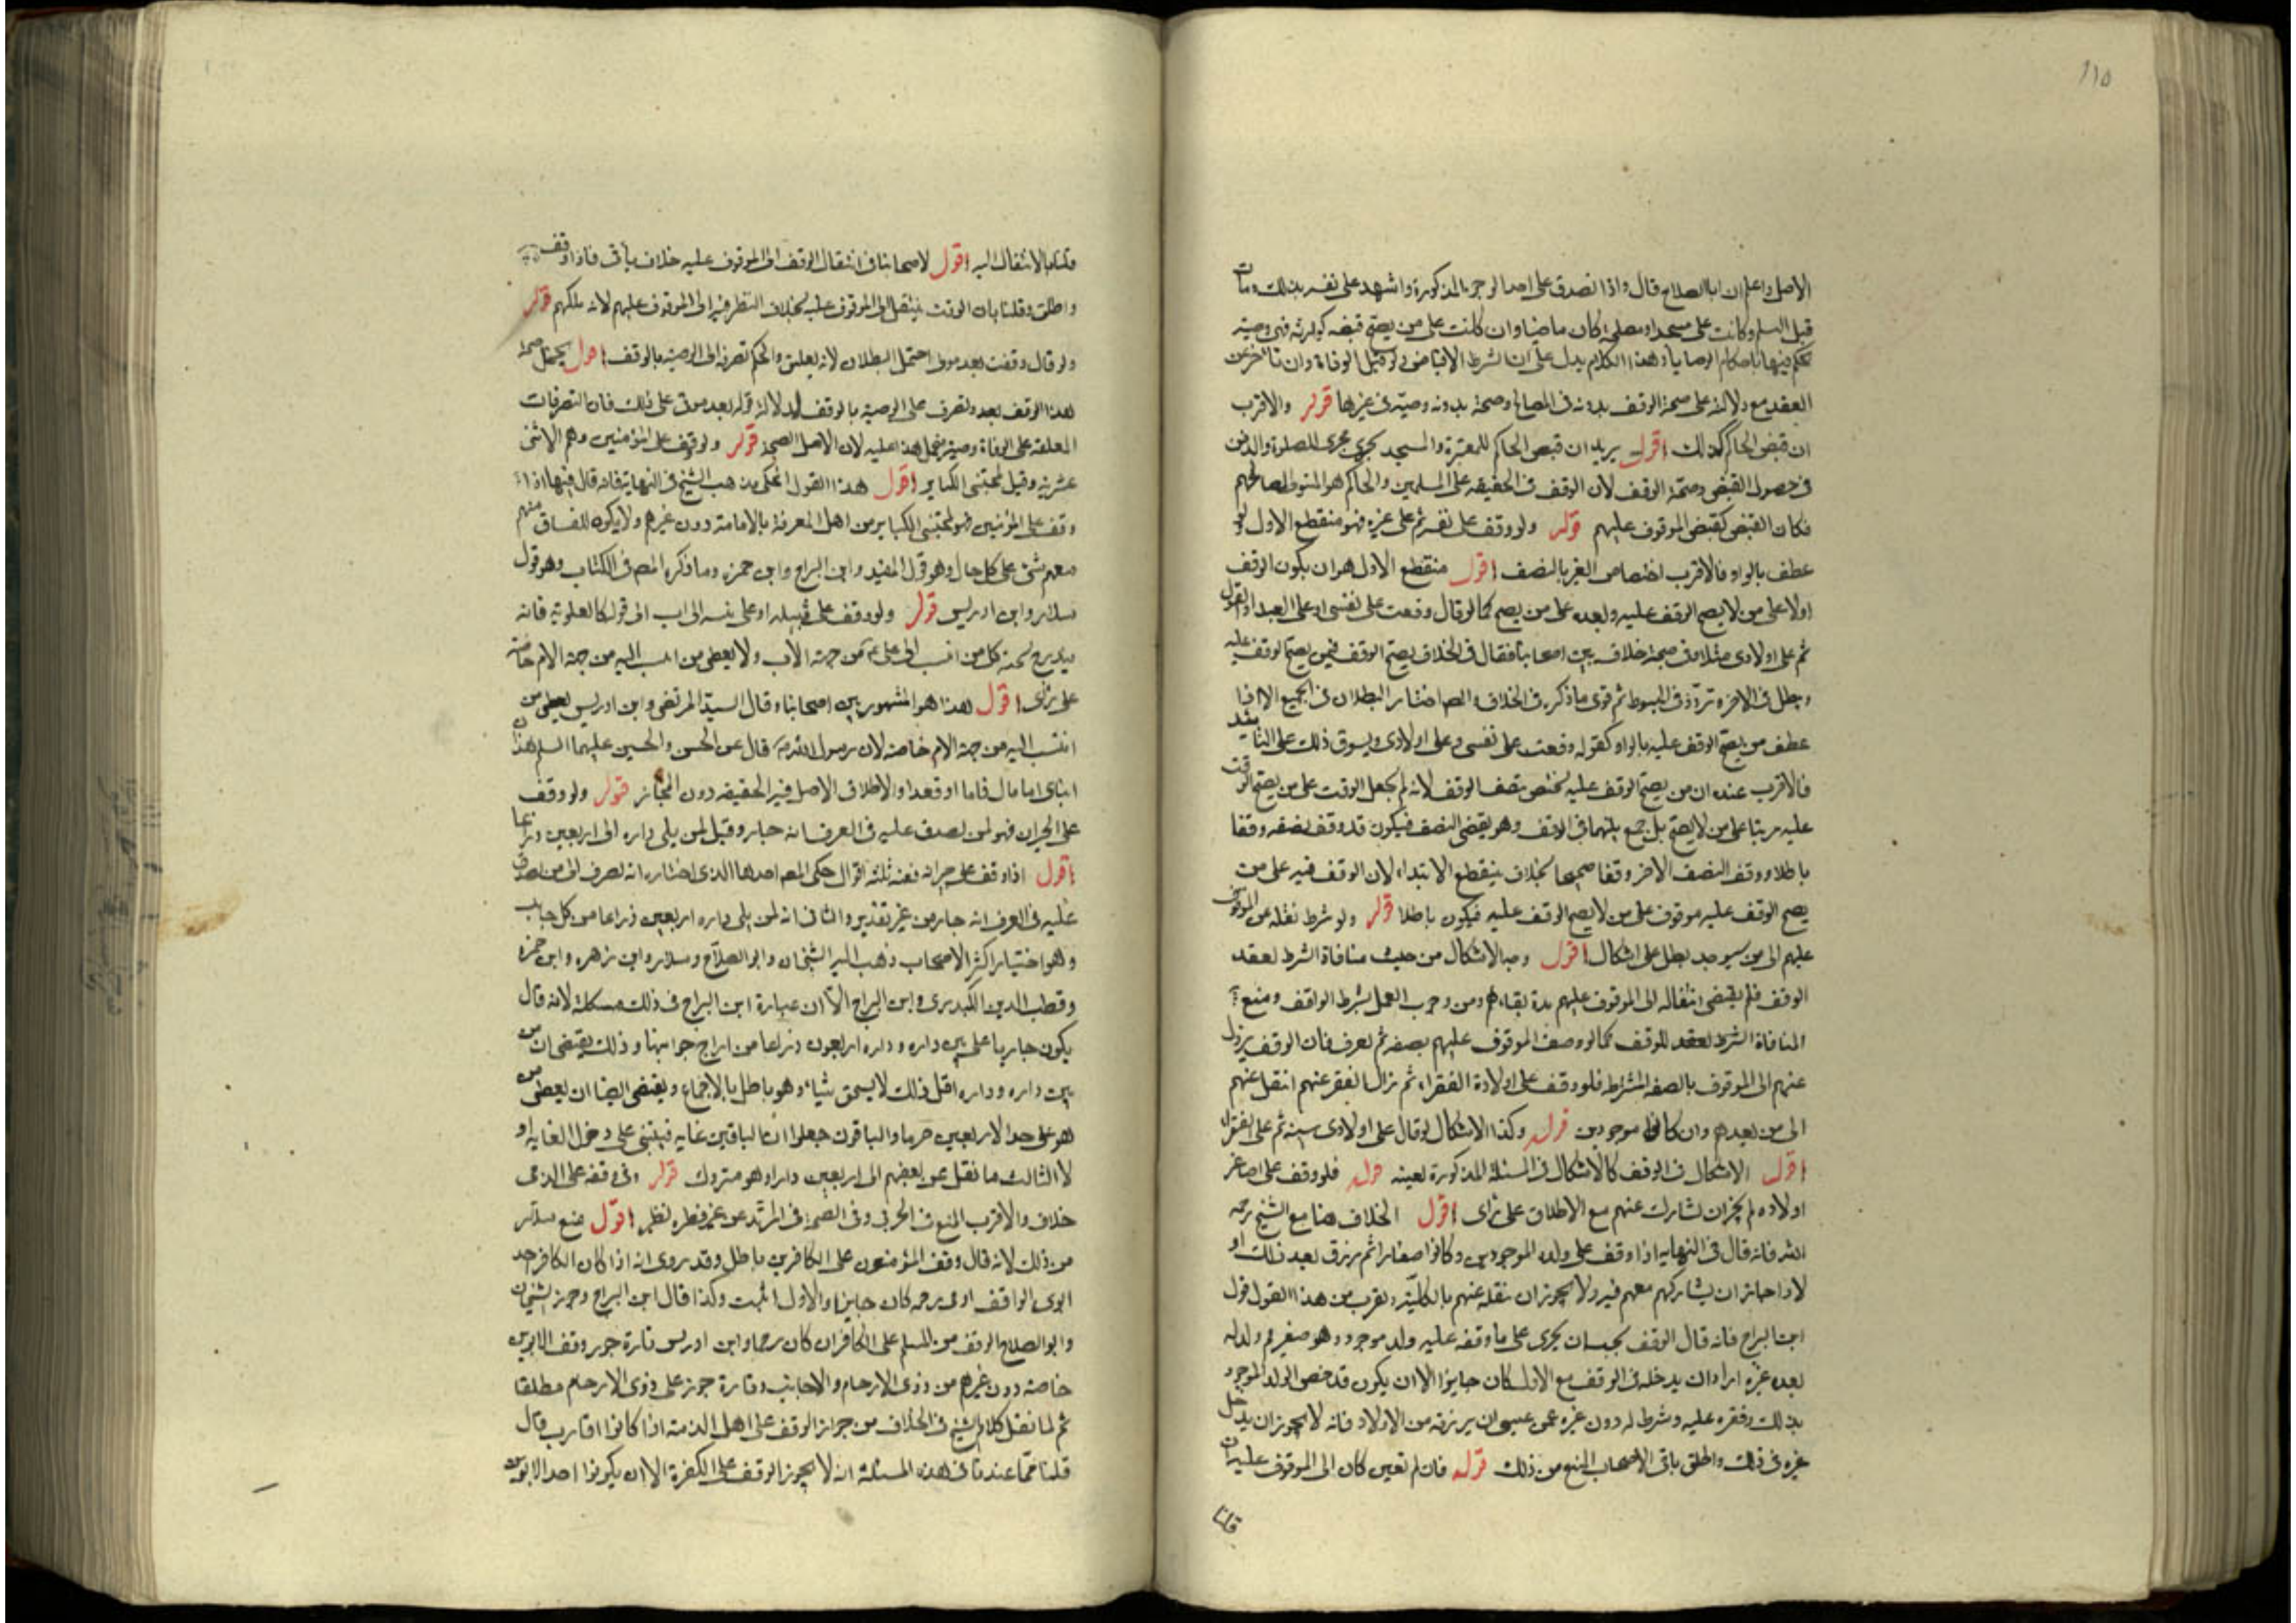 ١١٥
الأصل واعلم ان ابا الصلاح قال واذا تصدق على احد الوجوه المذكورة واشهد على نفسه بذلك ومات
قبل التسليم وكانت على مسجد او مصلحة كان ماضيا وان كانت على من يصح قبضه كولد فهى وصية
يحكم فيها باحكام الوصايا وهذا الكلام يدل على ان الشرط الاقباض ولو قبيل الوفاة وان تاخر عن
العقد مع دلالته على صحة الوقف بدونه فى المصالح وصحة بدونه وصية فى غيرها قوله والاقرب
ان قبض الحاكم كذلك اقول يريد ان قبض الحاكم للمقبرة والمسجد يجرى مجرى الصلوة والدفن
فى حصول القبض وصحة الوقف لان الوقف فى الحقيقة على المسلمين والحاكم هو المتولى لمصالحهم
فكان القبض كقبض الموقوف عليهم قوله ولو وقف على نفسه ثم على غيره فهو منقطع الاول ولو
عطف بالواو فالاقرب اختصاص الغير بالنصف اقول منقطع الاول هو ان يكون الوقف
اولا على من لا يصح الوقف عليه وبعده على من يصح كما لو قال وقفت على نفسى او على العبد او
ثم على اولادى مثلا وفى صحته خلاف بين اصحابنا فقال فى الخلاف يصح الوقف فيمن يصح الوقف عليه
ويبطل فى الاخر وتردد فى المبسوط ثم قوى ما ذكره فى الخلاف والمص اختار البطلان فى الجميع الا
عطف من يصح الوقف عليه بالواو كقوله وقفت على نفسى وعلى اولادى ويسوق ذلك على
فالاقرب عنده ان من يصح الوقف عليه يختص بنصف الوقف لانه لم يجعل الوقف على من يصح الوقف
عليه مرتبا على من لا يصح بل جمع بينهما فى الوقف وهو يقتضى النصف فيكون قد وقف نصفه وقفا
باطلا ووقف النصف الاخر وقفا صحيحا بخلاف منقطع الابتداء لان الوقف فيه على من
يصح الوقف عليه موقوف على من لا يصح الوقف عليه فيكون باطلا قوله ولو شرط نقله عن الموقوف
عليهم الى من سيوجد بطل على اشكال اقول وجه الاشكال من حيث منافاة الشرط لعقد
الوقف فانه يقتضى انتقاله الى الموقوف عليهم مدة بقاءهم ومن وجوب العمل بشرط الواقف ومنع
المنافاة الشرط لعقد الوقف كما لو وصف الموقوف عليهم بصفة ثم تعرف فان الوقف يزول
عنهم الى الموقوف بالصفة المشترط فلو وقف على اولاده الفقراء ثم زال الفقر عنهم انتقل عنهم
الى من بعدهم وان كانوا موجودين قوله وكذا الاشكال لو قال على اولادى سنة ثم على الفقراء
اقول الاشكال فى الوقف كالاشكال فى المسئلة المذكورة بعينه قوله فلو وقف على اصاغر
اولاده لم يجز ان يشارك عنهم مع الاطلاق على رأى اقول الخلاف هنا مع الشيخ رحمه
الله فانه قال فى النهاية اذا وقف على ولده الموجودين وكانوا صغارا ثم رزق بعد ذلك او
لادا جاز ان يشاركهم معهم فيه ولا يجوز ان ينقله عنهم بالكلية ويقرب من هذا القول قول
ابن البراج فانه قال الوقف يجب ان يجرى على ما وقفه عليه ولد موجود وهو صغير ثم ولد له
بعده غيره اراد ان يدخله فى الوقف مع الاول كان جايزا الا ان يكون قد خص الولد الموجود
بذلك وقصره عليه وشرط له دون غيره ممن عسى ان يرزقه من الاولاد فانه لا يجوز ان يدخل
غيره فى ذلك واطلق باقى الاصحاب المنع من ذلك قوله فان لم يعين كان الى الموقوف عليه ان
قلنا
قلنا بالانتقال اليه اقول لاصحابنا فى انتقال الوقف الى الموقوف عليه خلاف يأتى فاذا وقف
واطلق وقلنا بان الوقف ينتقل الى الموقوف عليه بخلاف النظر فيه الى الموقوف عليهم لانه ملكهم قوله
ولو قال وقفت بعد موتى احتمل البطلان لانه تعليق والحكم بصرفه الى الوصية بالوقف اقول يحتمل صحة
هذا الوقف بعده ويصرف على الوصية بالوقف لدلالة قوله بعد موتى على ذلك فان التصرفات
المعلقة على الوفاة وصية فيحمل هذا عليه لان الاصل الصحة قوله ولو وقف على المؤمنين وهم الاثنى
عشرية وقيل لمجتنبى الكباير اقول هذا القول المحكى مذهب الشيخ فى النهاية فانه قال فيها اذا
وقف على المؤمنين فهو لمجتنبى الكباير من اهل المعرفة بالامامة دون غيرهم ولا يكون للفساق منهم
معهم شئ على كل حال وهو قول المفيد وابن البراج وابن حمزة وما ذكره المص فى الكتاب وهو قول
سلار وابن ادريس قوله ولو وقف على قبيلة او على منتسبه الى اب الى قوله كالعلوية فانه
يندرج تحته كل من انتسب الى على ع من جهة الاب ولا يعطى من انتسب اليه من جهة الام خاصة
على رأى اقول هذا هو المشهور بين اصحابنا وقال السيد المرتضى وابن ادريس يعطى من
انتسب اليه من جهة الام خاصة لان رسول الله ص قال عن الحسن والحسين عليهما السلم هذان
ابناى اماما قاما او قعدا والاطلاق الاصل فيه الحقيقة دون المجاز قوله ولو وقف
على الجيران فهو لمن يصدق عليه فى العرف انه جار وقيل لمن يلى داره الى اربعين ذراعا
اقول اذا وقف على جيرانه ففيه ثلثة اقوال حكى المص احدها الذى اختاره انه يصرف الى من يصدق
عليه فى العرف انه جار من غير تقدير والثانى انه لمن يلى داره اربعين ذراعا من كل جانب
وهو اختيار اكثر الاصحاب ذهب اليه الشيخان وابو الصلاح وسلار وابن زهره وابن حمزه
وقطب الدين الكيدرى وابن البراج الا ان عبارة ابن البراج فى ذلك مشكلة لانه قال
يكون جاريا على بين داره وداره اربعون ذراعا من اربع جوانبها وذلك يقتضى ان من
بين داره وداره اقل من ذلك لا يستحق شيئا وهو باطل بالاجماع ويقتضى ايضا ان يعطى من
هو على حد الاربعين حرما والباقون جعلوا الباقين غاية فيبتنى على دخول الغاية او
لا الثالث ما نقل عن بعضهم الى اربعين دارا وهو متروك قوله وفى وقفه على الذمى
خلاف والاقرب المنع فى الحربى وفى الصحة فى المرتد عن غير فطرة نظر اقول منع سلار
من ذلك لانه قال وقف المؤمنون على الكافرين باطل وقد روى انه اذا كان الكافر احد
ابوى الواقف او ذى رحمه كان جايزا والاول اثبت وكذا قال ابن البراج وجوز الشيخان
وابو الصلاح الوقف من المسلم على الكافر ان كان رحما وابن ادريس تارة جوز وقف الابوين
خاصة دون غيرهم من ذوى الارحام والاجانب وتارة جوز على ذوى الارحام مطلقا
ثم لما نقل كلام الشيخ فى الخلاف من جواز الوقف على اهل الذمة اذا كانوا اقارب قال
قلنا فما عندنا فى هذه المسئلة انه لا يجوز الوقف على الكفرة الا ان يكونوا احد الابوين